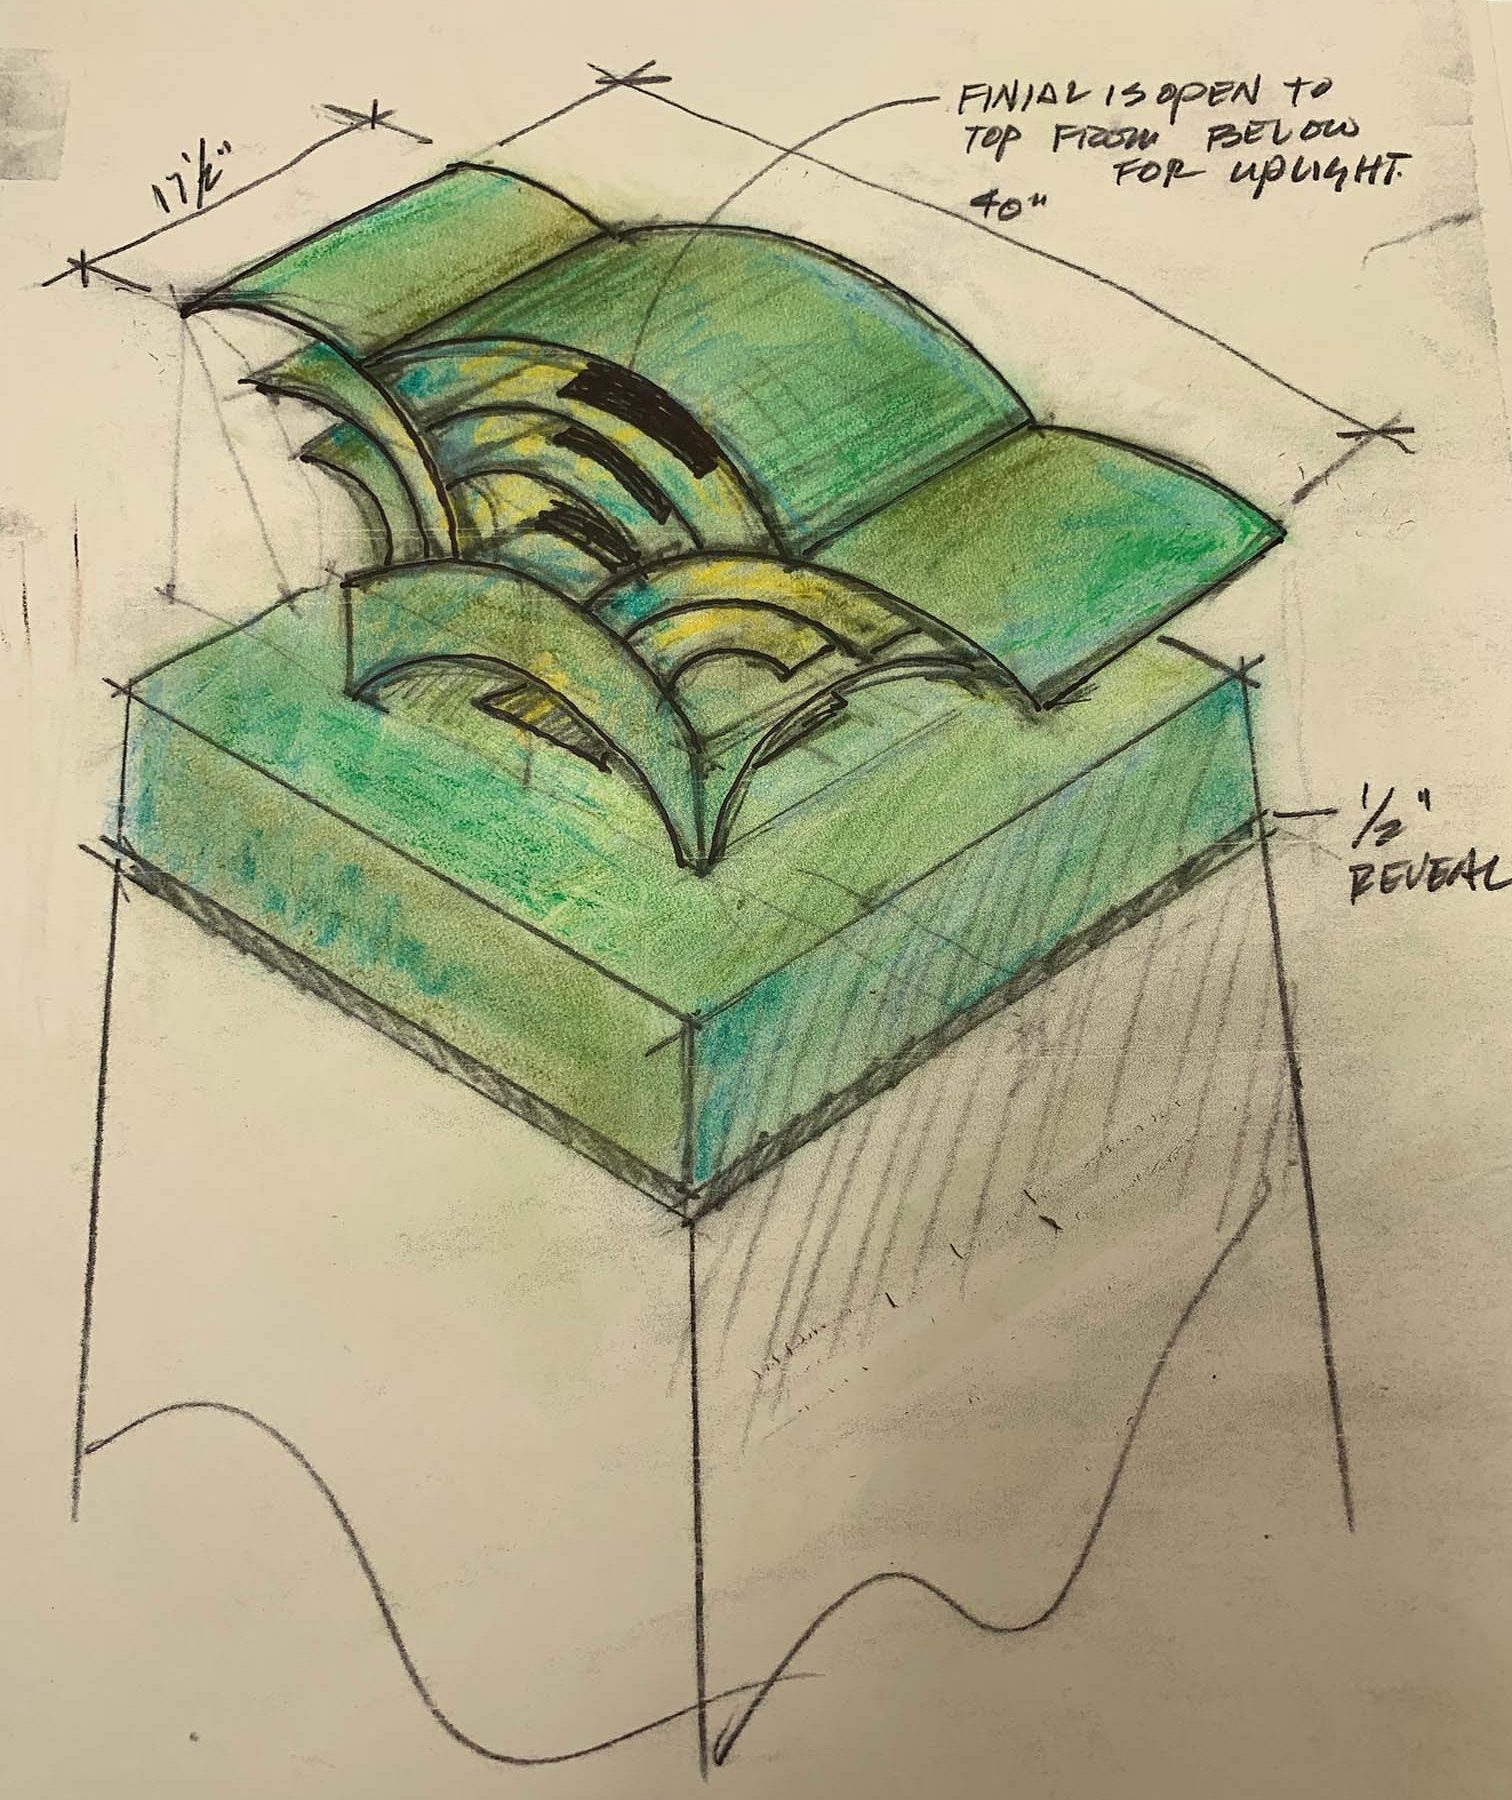 17 1/2"
FINIAL IS OPEN TO
TOP FROM BELOW
FOR UPLIGHT.
40"
1/2"
REVEAL